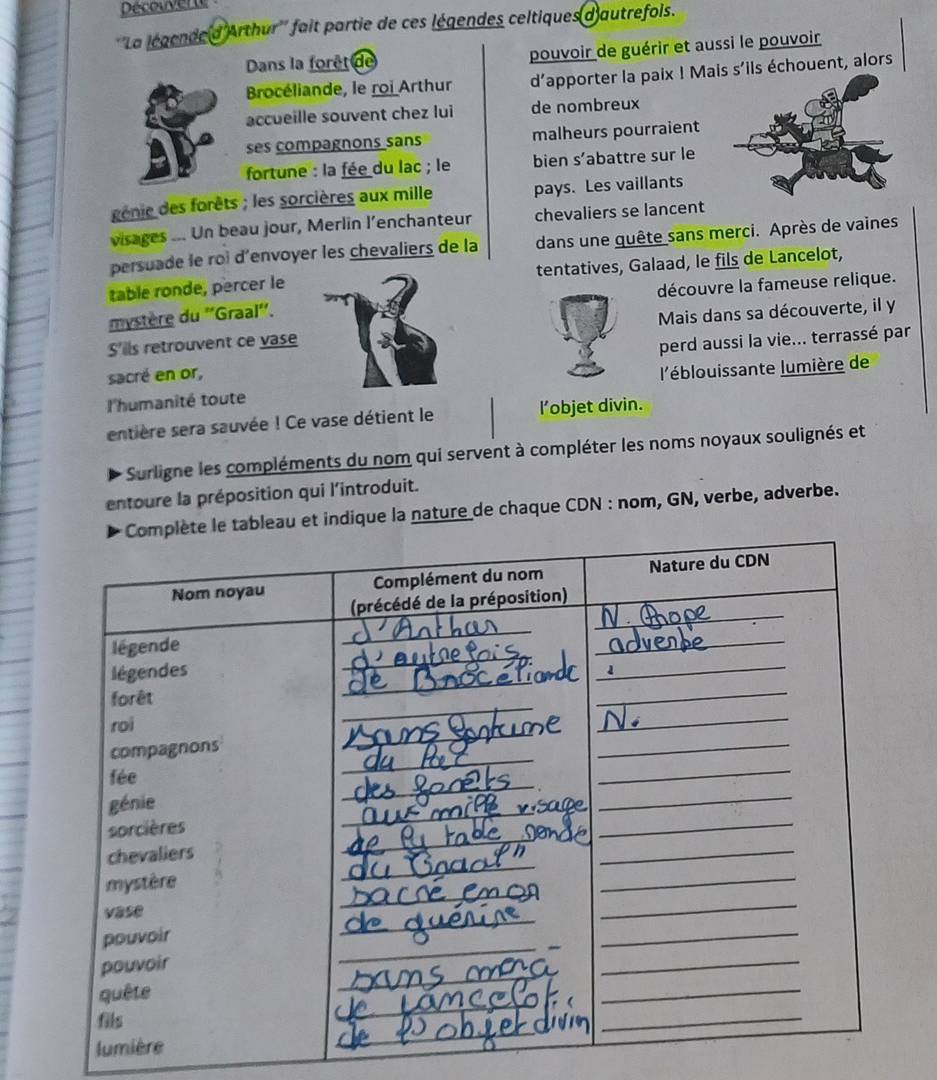 Découverte
"La légende d'Arthur" fait partie de ces légendes celtiques d'autrefois.
Dans la forêt de
Brocéliande, le roi Arthur
accueille souvent chez lui
ses compagnons sans
fortune : la fée du lac ; le
génie des forêts ; les sorcières aux mille
visages ... Un beau jour, Merlin l'enchanteur
persuade le roi d'envoyer les chevaliers de la
table ronde, percer le
mystère du "Graal".
S'ils retrouvent ce vase
sacré en or,
l'humanité toute
entière sera sauvée ! Ce vase détient le
pouvoir de guérir et aussi le pouvoir
d'apporter la paix ! Mais s'ils échouent, alors
de nombreux
malheurs pourraient
bien s'abattre sur le
pays. Les vaillants
chevaliers se lancent
dans une quête sans merci. Après de vaines
tentatives, Galaad, le fils de Lancelot,
découvre la fameuse relique.
Mais dans sa découverte, il y
perd aussi la vie... terrassé par
l'éblouissante lumière de
l'objet divin.
▶ Surligne les compléments du nom qui servent à compléter les noms noyaux soulignés et
entoure la préposition qui l'introduit.
▶ Complète le tableau et indique la nature de chaque CDN : nom, GN, verbe, adverbe.
Nom noyau Complément du nom Nature du CDN
(précédé de la préposition)
légende d'Arthur N. Prope
légendes d'autrefois adverbe
forêt de Brocéliande
roi
compagnons sans fortune N.
fée du lac
génie des forêts
sorcières aux mille visage
chevaliers de la table ronde
mystère du Graal"
vase sacré en or
pouvoir de guérire
pouvoir
quête sans
fils de Lancelot
lumière de objet divin